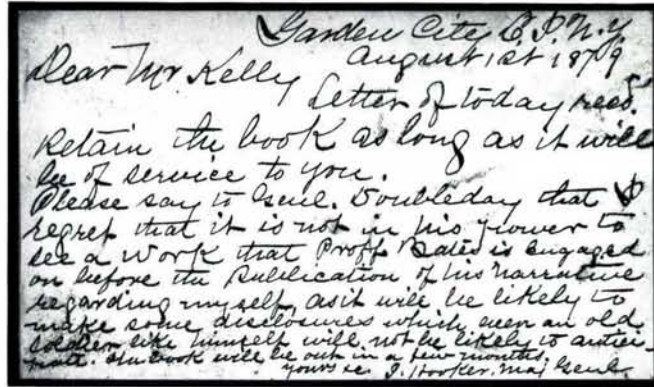 Garden City L.I. N.Y.
August 1st 1879
Dear Mr Kelly
Letter of today recd.
Retain the book as long as it will
be of service to you.
Please say to Genl. Doubleday that I
regret that it is not in his power to
see a work that Proff Bates is engaged
on before the Publication of his narrative
regarding myself, as it will be likely to
make some disclosures which even an old
soldier like himself will not be likely to antici-
pate. The book will be out in a few months.
yours &c. J. Hooker. Maj Genl.